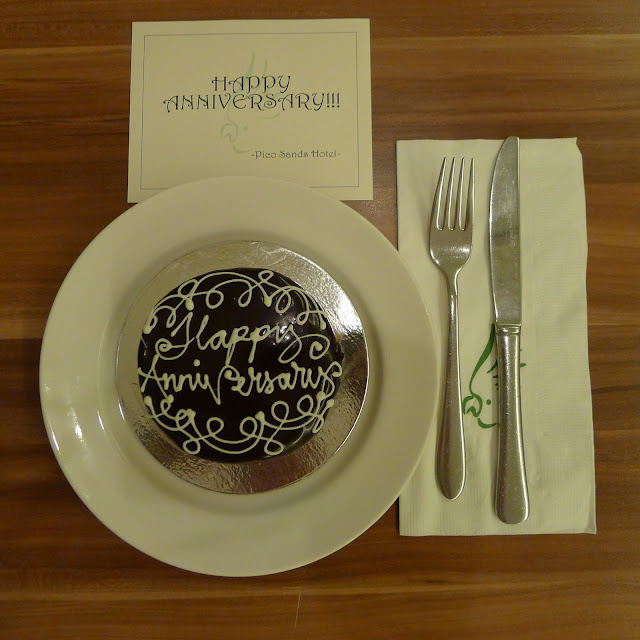 HAPPY
ANNIVERSARY!!!
-Pico Sands Hotel-
Happy
Anniversary